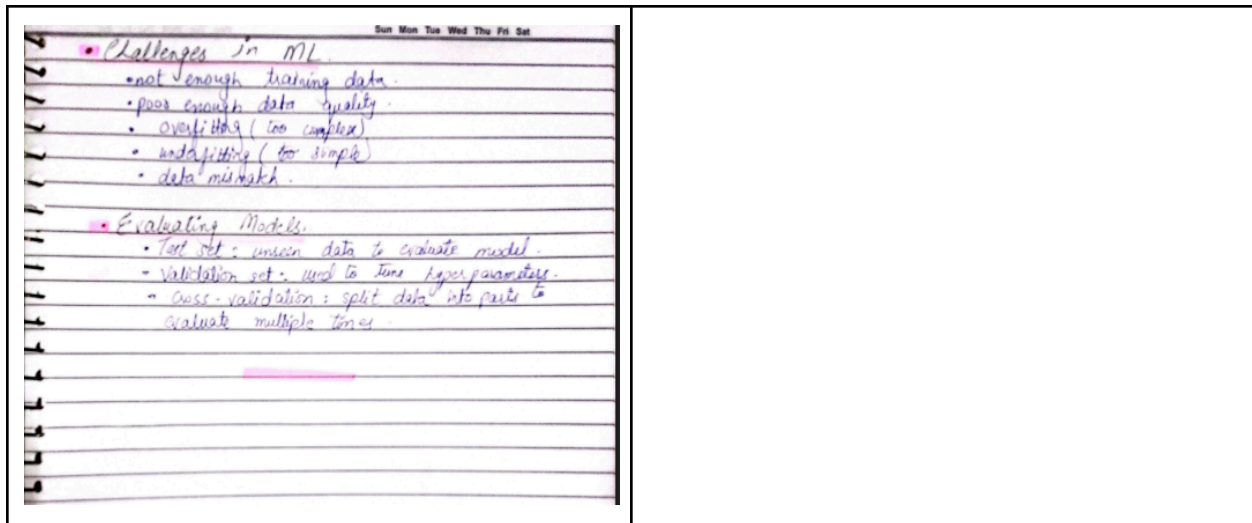 Sun Mon Tue Wed Thu Fri Sat
• Challenges in ML.
• not enough training data.
• poor enough data quality.
• overfitting (too complex)
• underfitting (too simple)
• data mismatch.
• Evaluating Models.
• Test set : unseen data to evaluate model.
- Validation set : used to tune hyperparameters.
- Cross-validation : split data into parts to
evaluate multiple times.